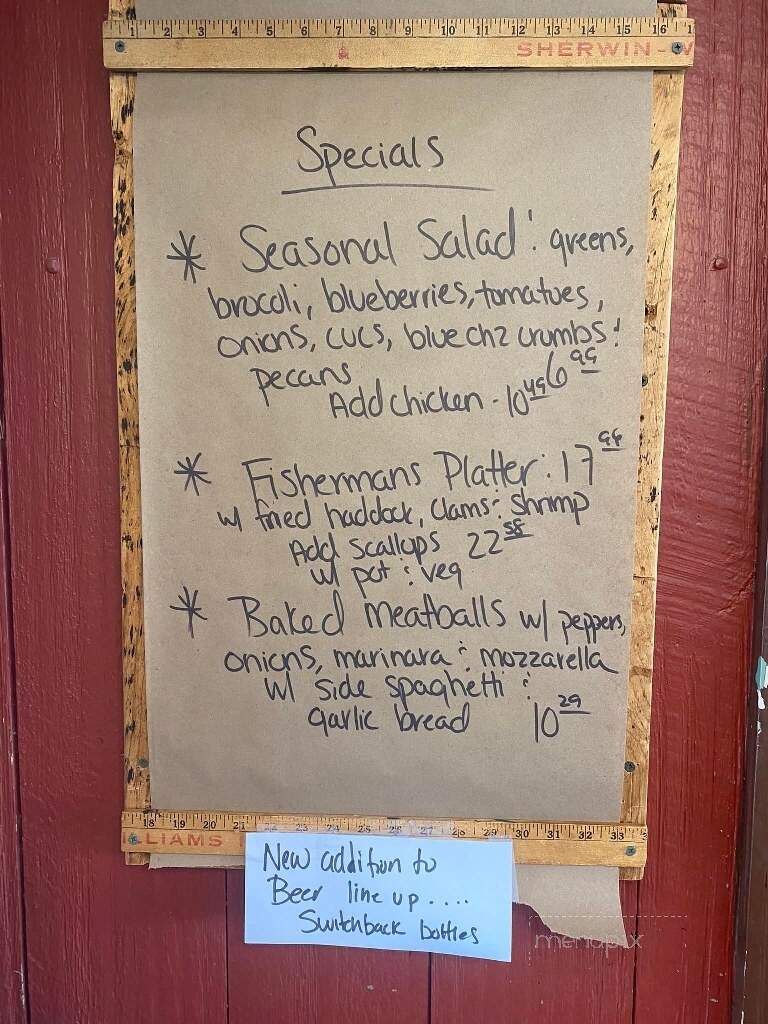 1 2 3 4 5 6 7 8 9 10 11 12 13 14 15 16
SHERWIN-W
Specials
* Seasonal Salad: greens,
brocoli, blueberries, tomatoes,
onions, cucs, blue chz crumbs &
pecans 6 99
Add chicken - 10 49
* Fishermans Platter: 17 96
w/ fried haddock, clams & shrimp
Add scallops 22 58
w/ pot & veg
* Baked meatballs w/ peppers,
onions, marinara & mozzarella
w/ side spaghetti &
garlic bread 10 29
18 19 20 21 22 23 24 25 26 27 28 29 30 31 32 33
LLIAMS
New addition to
Beer line up....
Switchback bottles
menupix